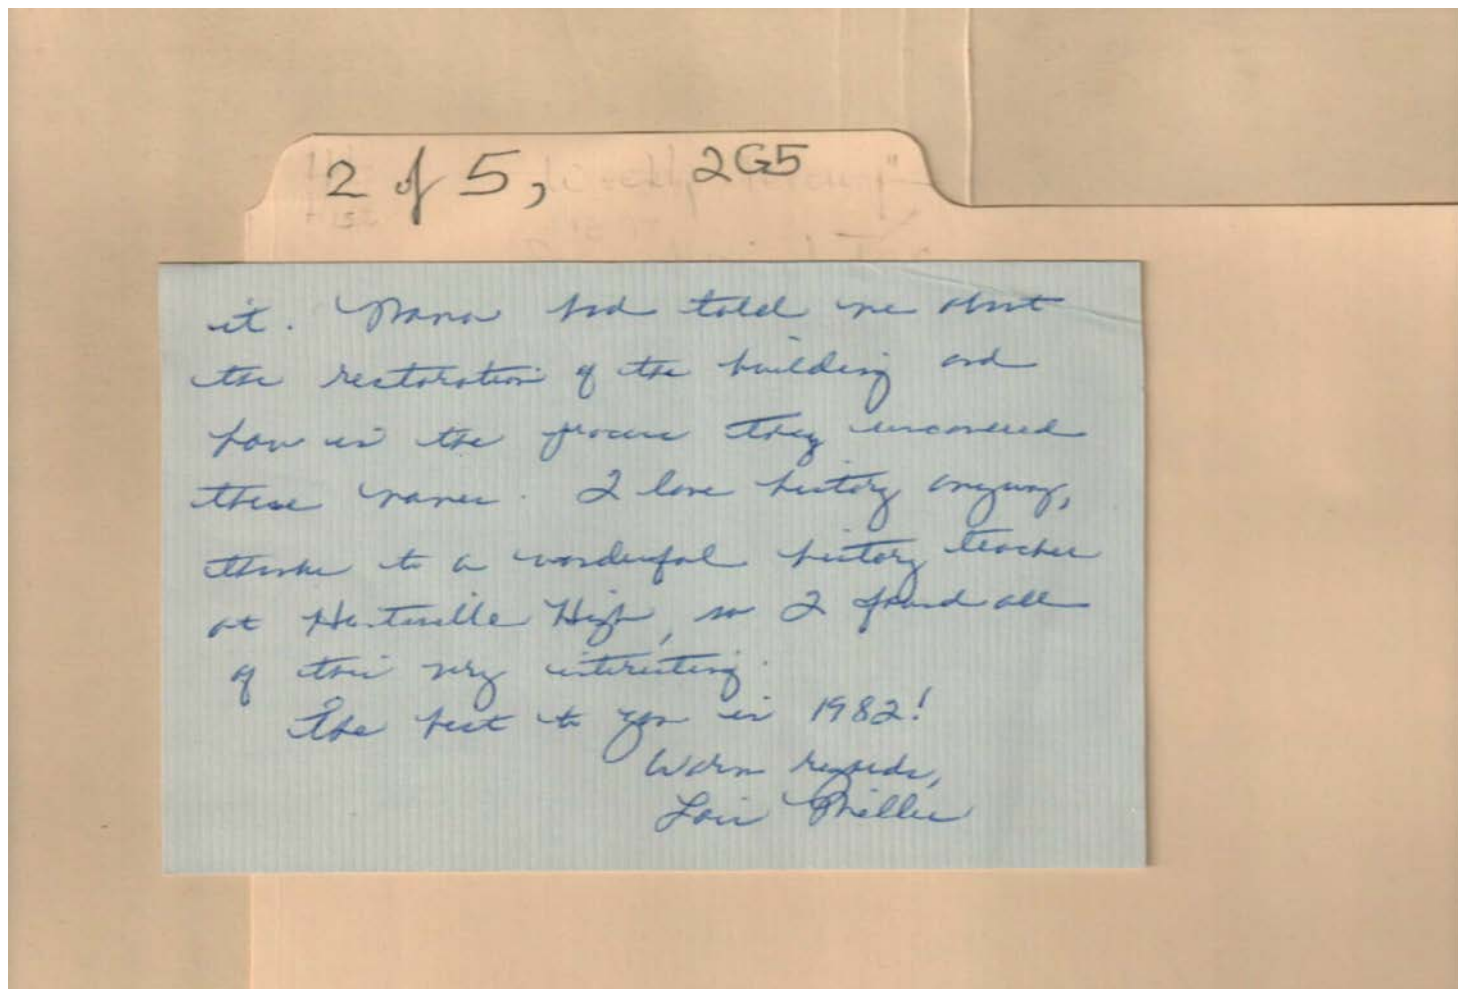 2 of 5, 2G5
it. Mama had told me about
the restoration of the building and
how in the process they uncovered
these names. I love history anyway,
thanks to a wonderful history teacher
at Huntsville High, so I found all
of this very interesting.
The best to you in 1982!
Warm regards,
Lois Miller